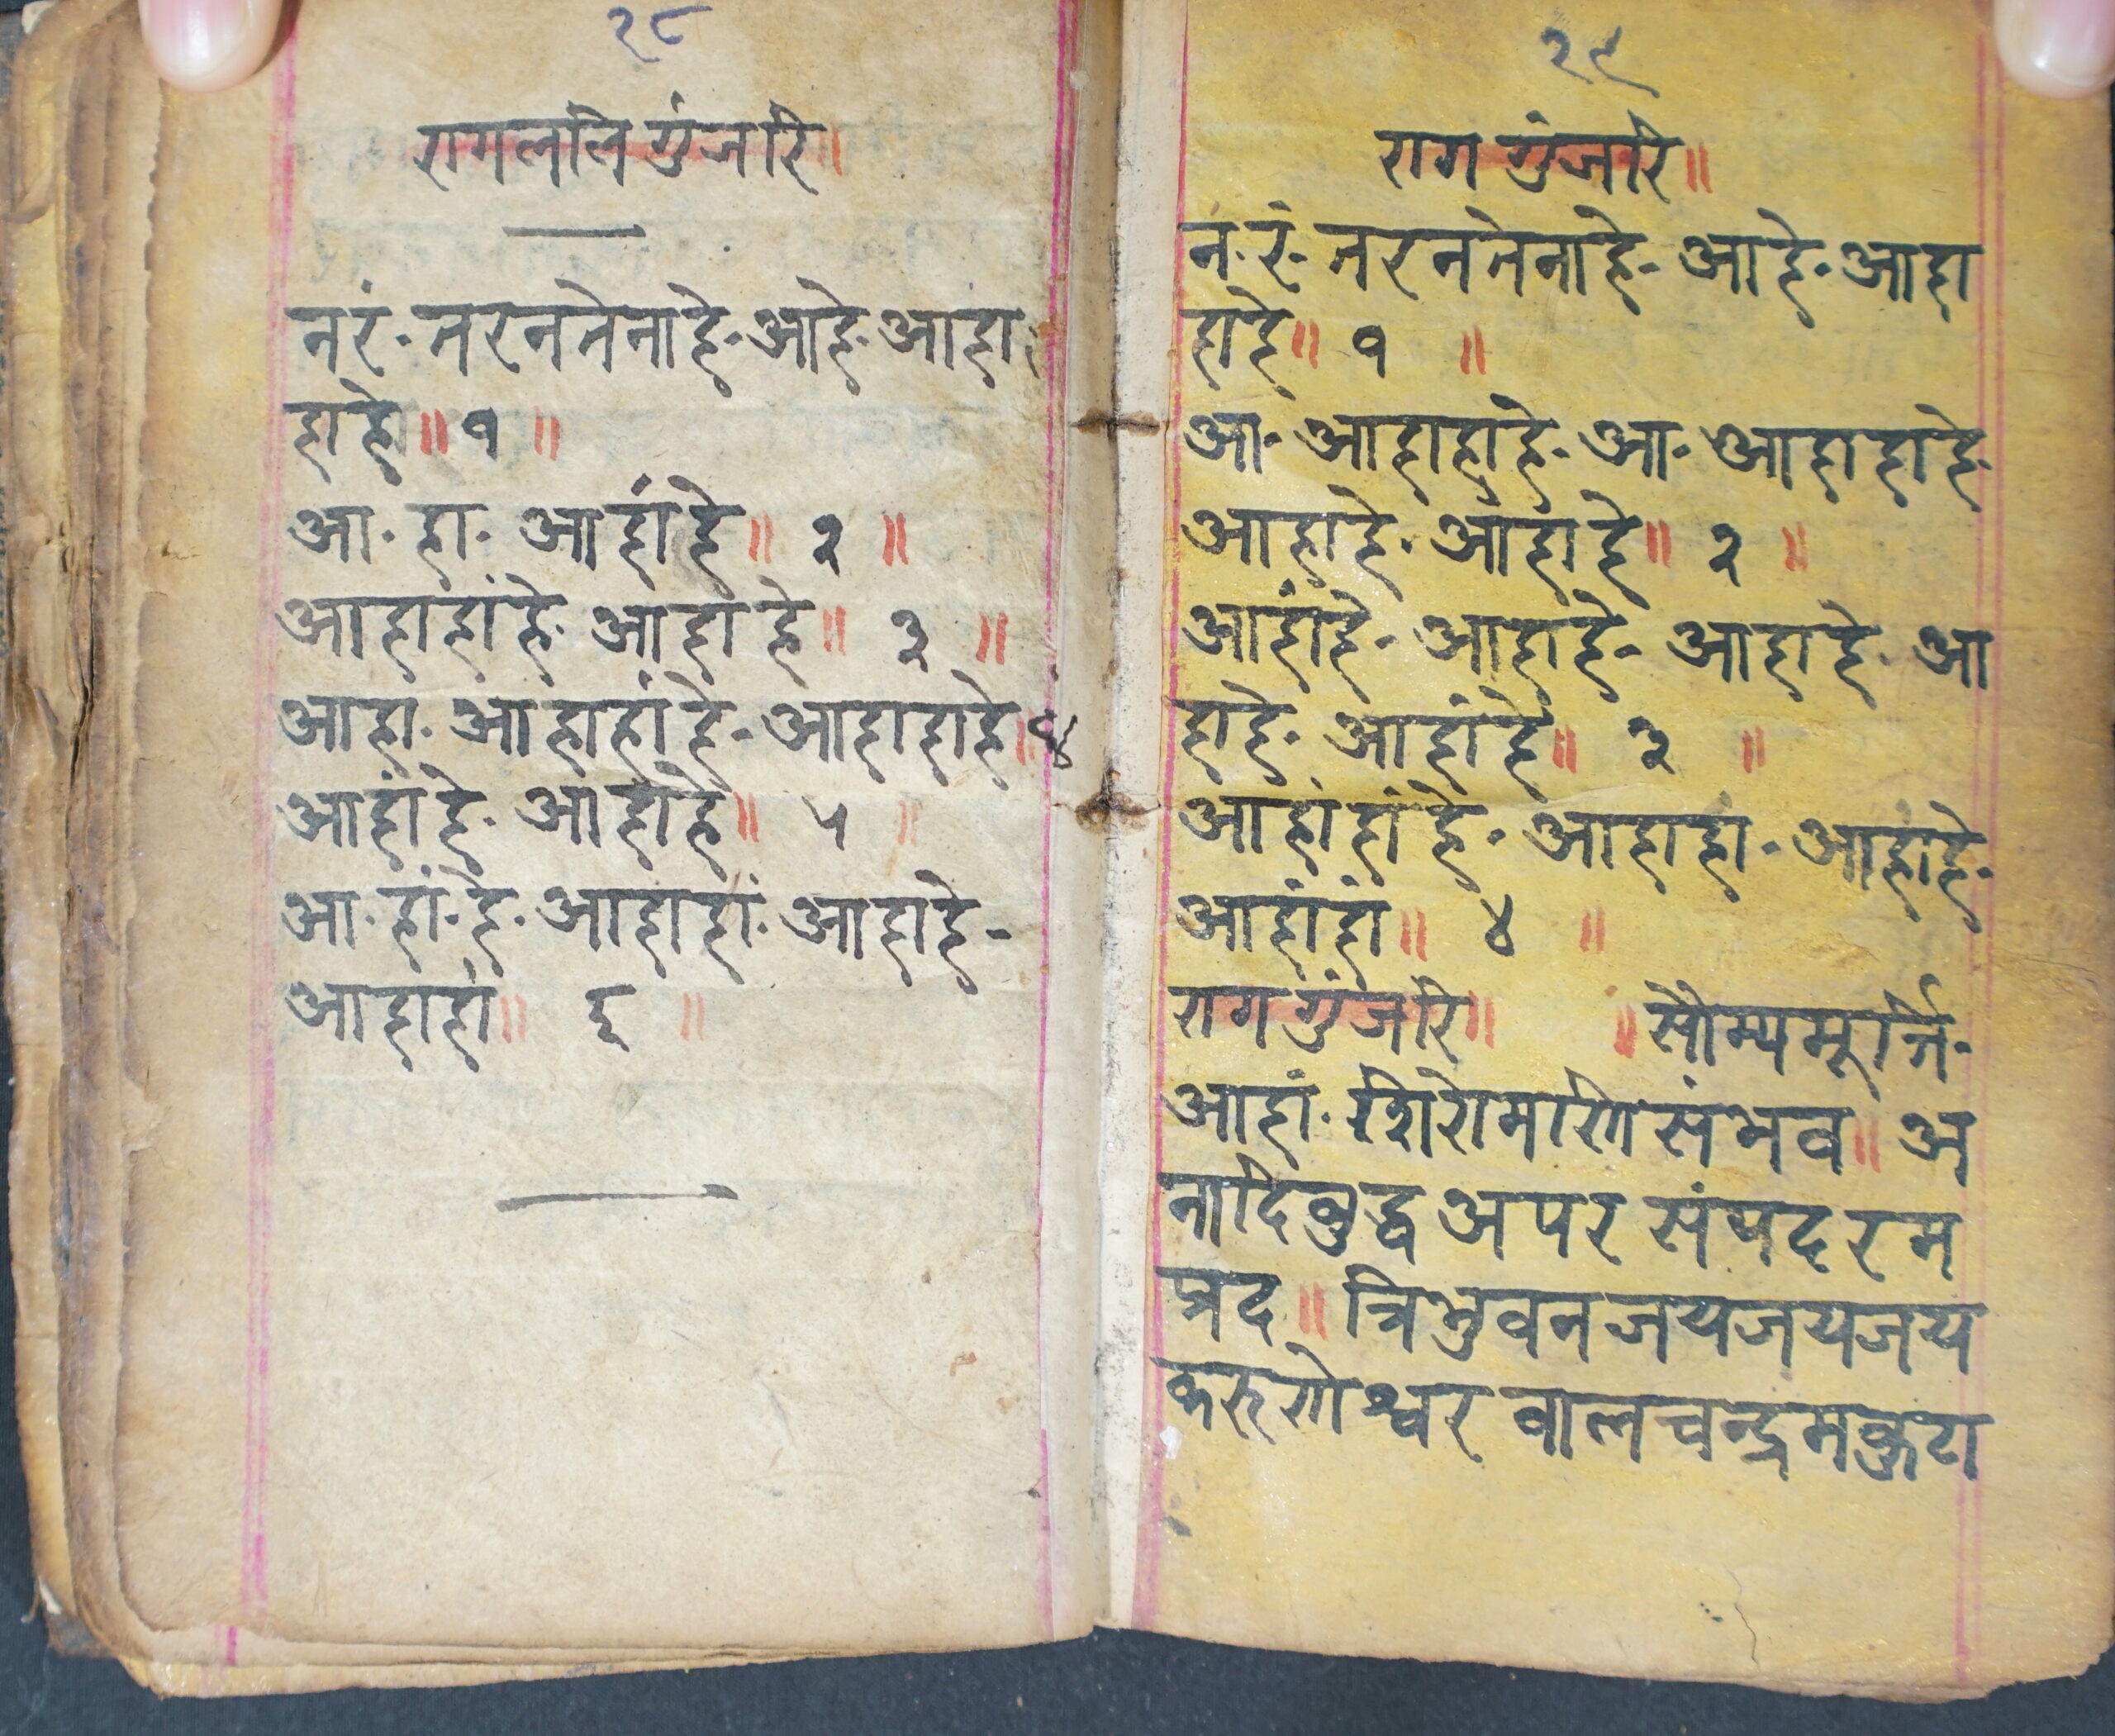 २८
रागललि गुंजरि।
नरं॰ नरनतेनाहे॰ आहे॰ आहा
हाहे॥ १ ॥
आ॰ हा॰ आहांहे॥ २ ॥
आहांहांहे॰ आहाहे॥ ३ ॥
आहा॰ आंहाहांहे॰ आहाहाहे॥ ४
आहांहे॰ आहाहे॥ ५ ॥
आ॰ हां॰ हे॰ आहाहां॰ आहाहे॰
आहाहां॥ ६ ॥
२९
राग गुंजरि॥
न॰ रं॰ नरनतेनाहे॰ आहे॰ आहा
हाहे॥ १ ॥
आ॰ आहाहाहे॰ आ॰ आहाहाहे॰
आहाहे॰ आंहाहे॥ २ ॥
आहांहे॰ आहाहे॰ आहाहे॰ आ
हाहे॰ आहांहे॥ ३ ॥
आहांहांहे॰ आहाहा॰ आहाहे॰
आहांहां॥ ४ ॥
राग गुंजरि॥ ॥ सौम्यमूर्त्ति॰
आहां॰ शिरोमणि संभव॥ अ
नादिबुद्ध अपर संपद रम
प्रद॥ त्रिभुवन जयजयजय
करुणेश्वर बालचन्द्रमकुटा